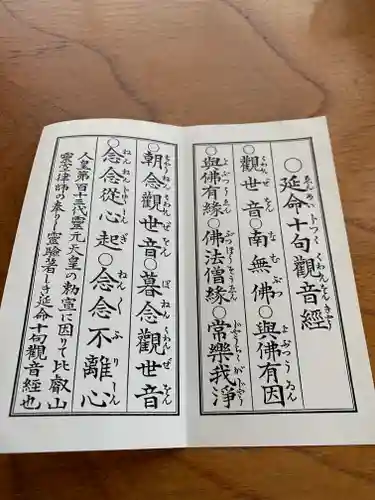 ○延命十句觀音經
○觀世音○南無佛○與佛有因
○與佛有緣○佛法僧緣○常樂我淨
○朝念觀世音○暮念觀世音
○念念從心起○念念不離心
人皇第百十三代靈元天皇の勅宣に因りて比叡山
靈空律師の奉りし靈驗著しき延命十句觀音經也